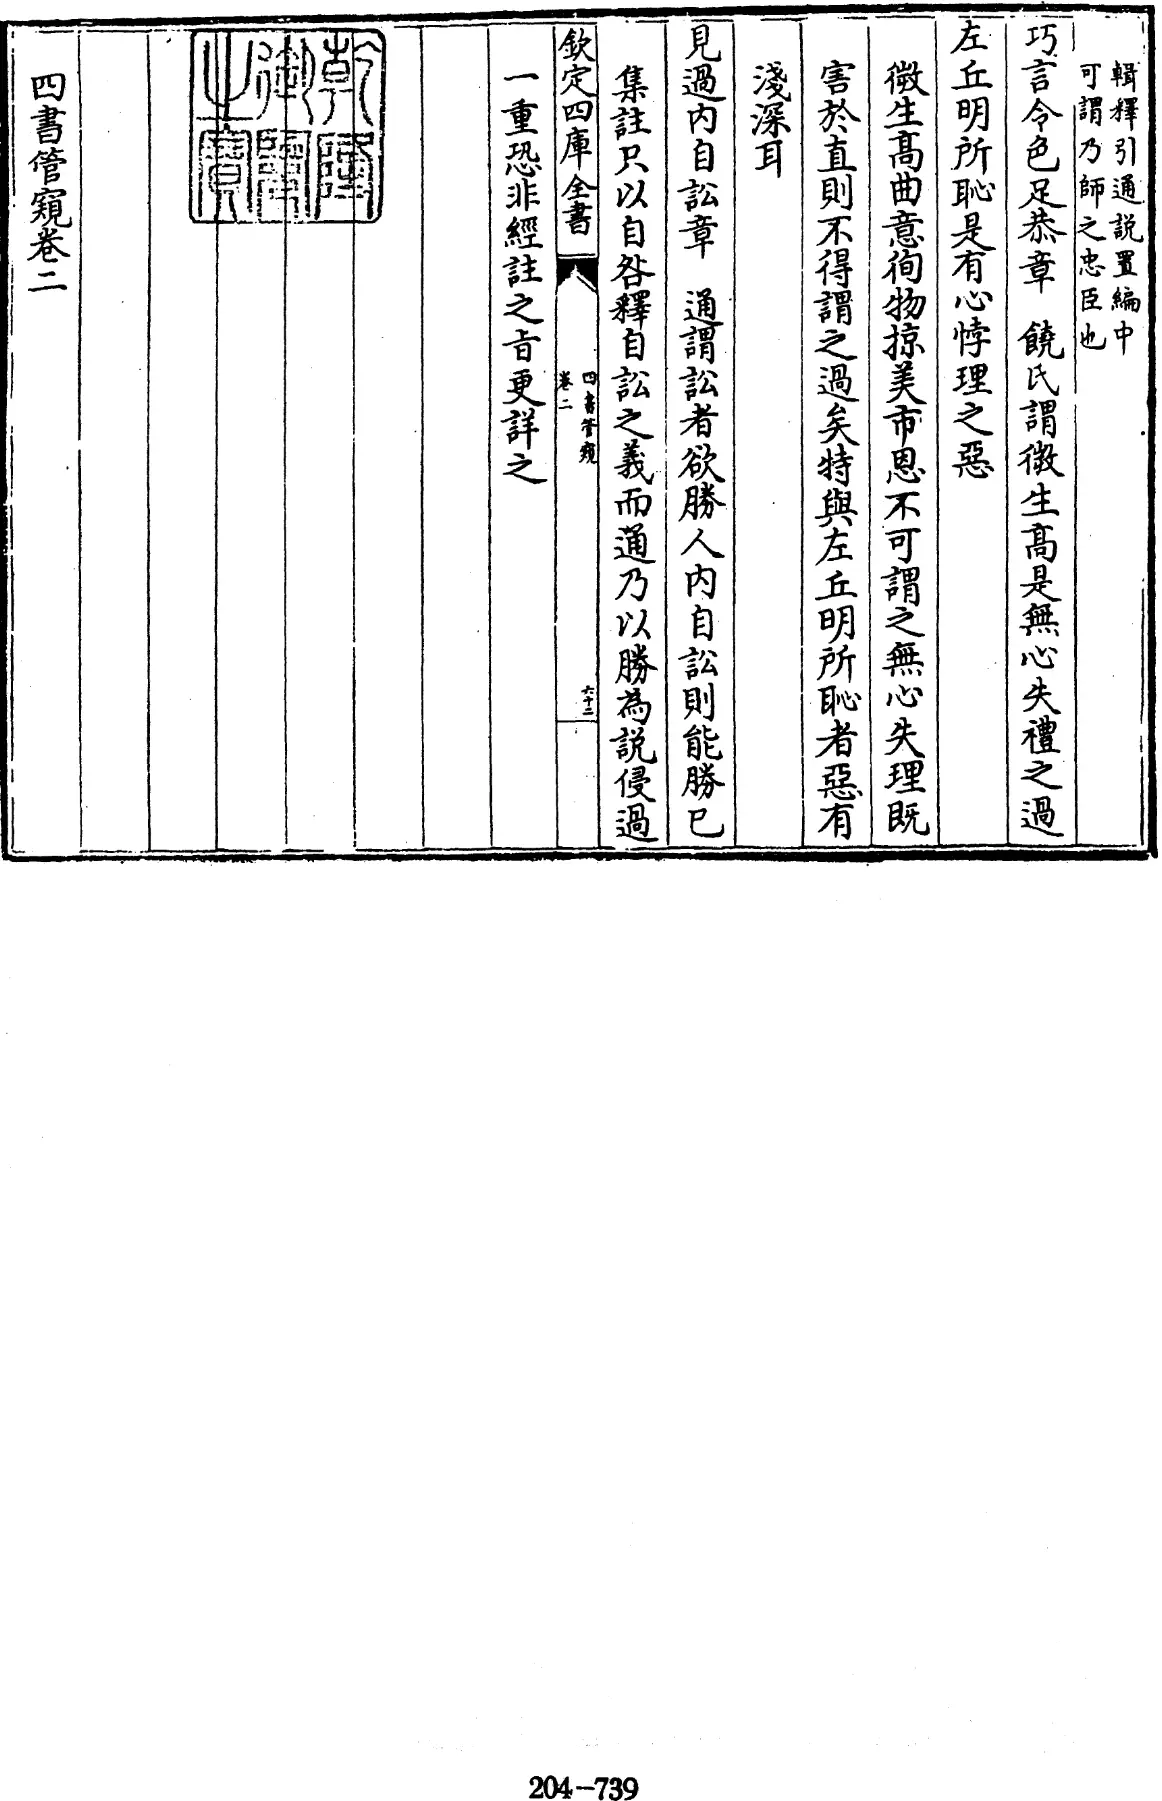 輯釋引通說置編中
可謂乃師之忠臣也
巧言令色足恭章　饒氏謂微生高是無心失禮之過
左丘明所恥是有心悖理之惡
微生高曲意徇物掠美市恩不可謂之無心失理既
害於直則不得謂之過矣特與左丘明所恥者惡有
淺深耳
見過内自訟章　通謂訟者欲勝人内自訟則能勝已
集註只以自咎釋自訟之義而通乃以勝為說侵過
欽定四庫全書
四書管窺
卷二
六十二
一重恐非經註之旨更詳之
乾隆御覽之寶
四書管窺卷二
204-739